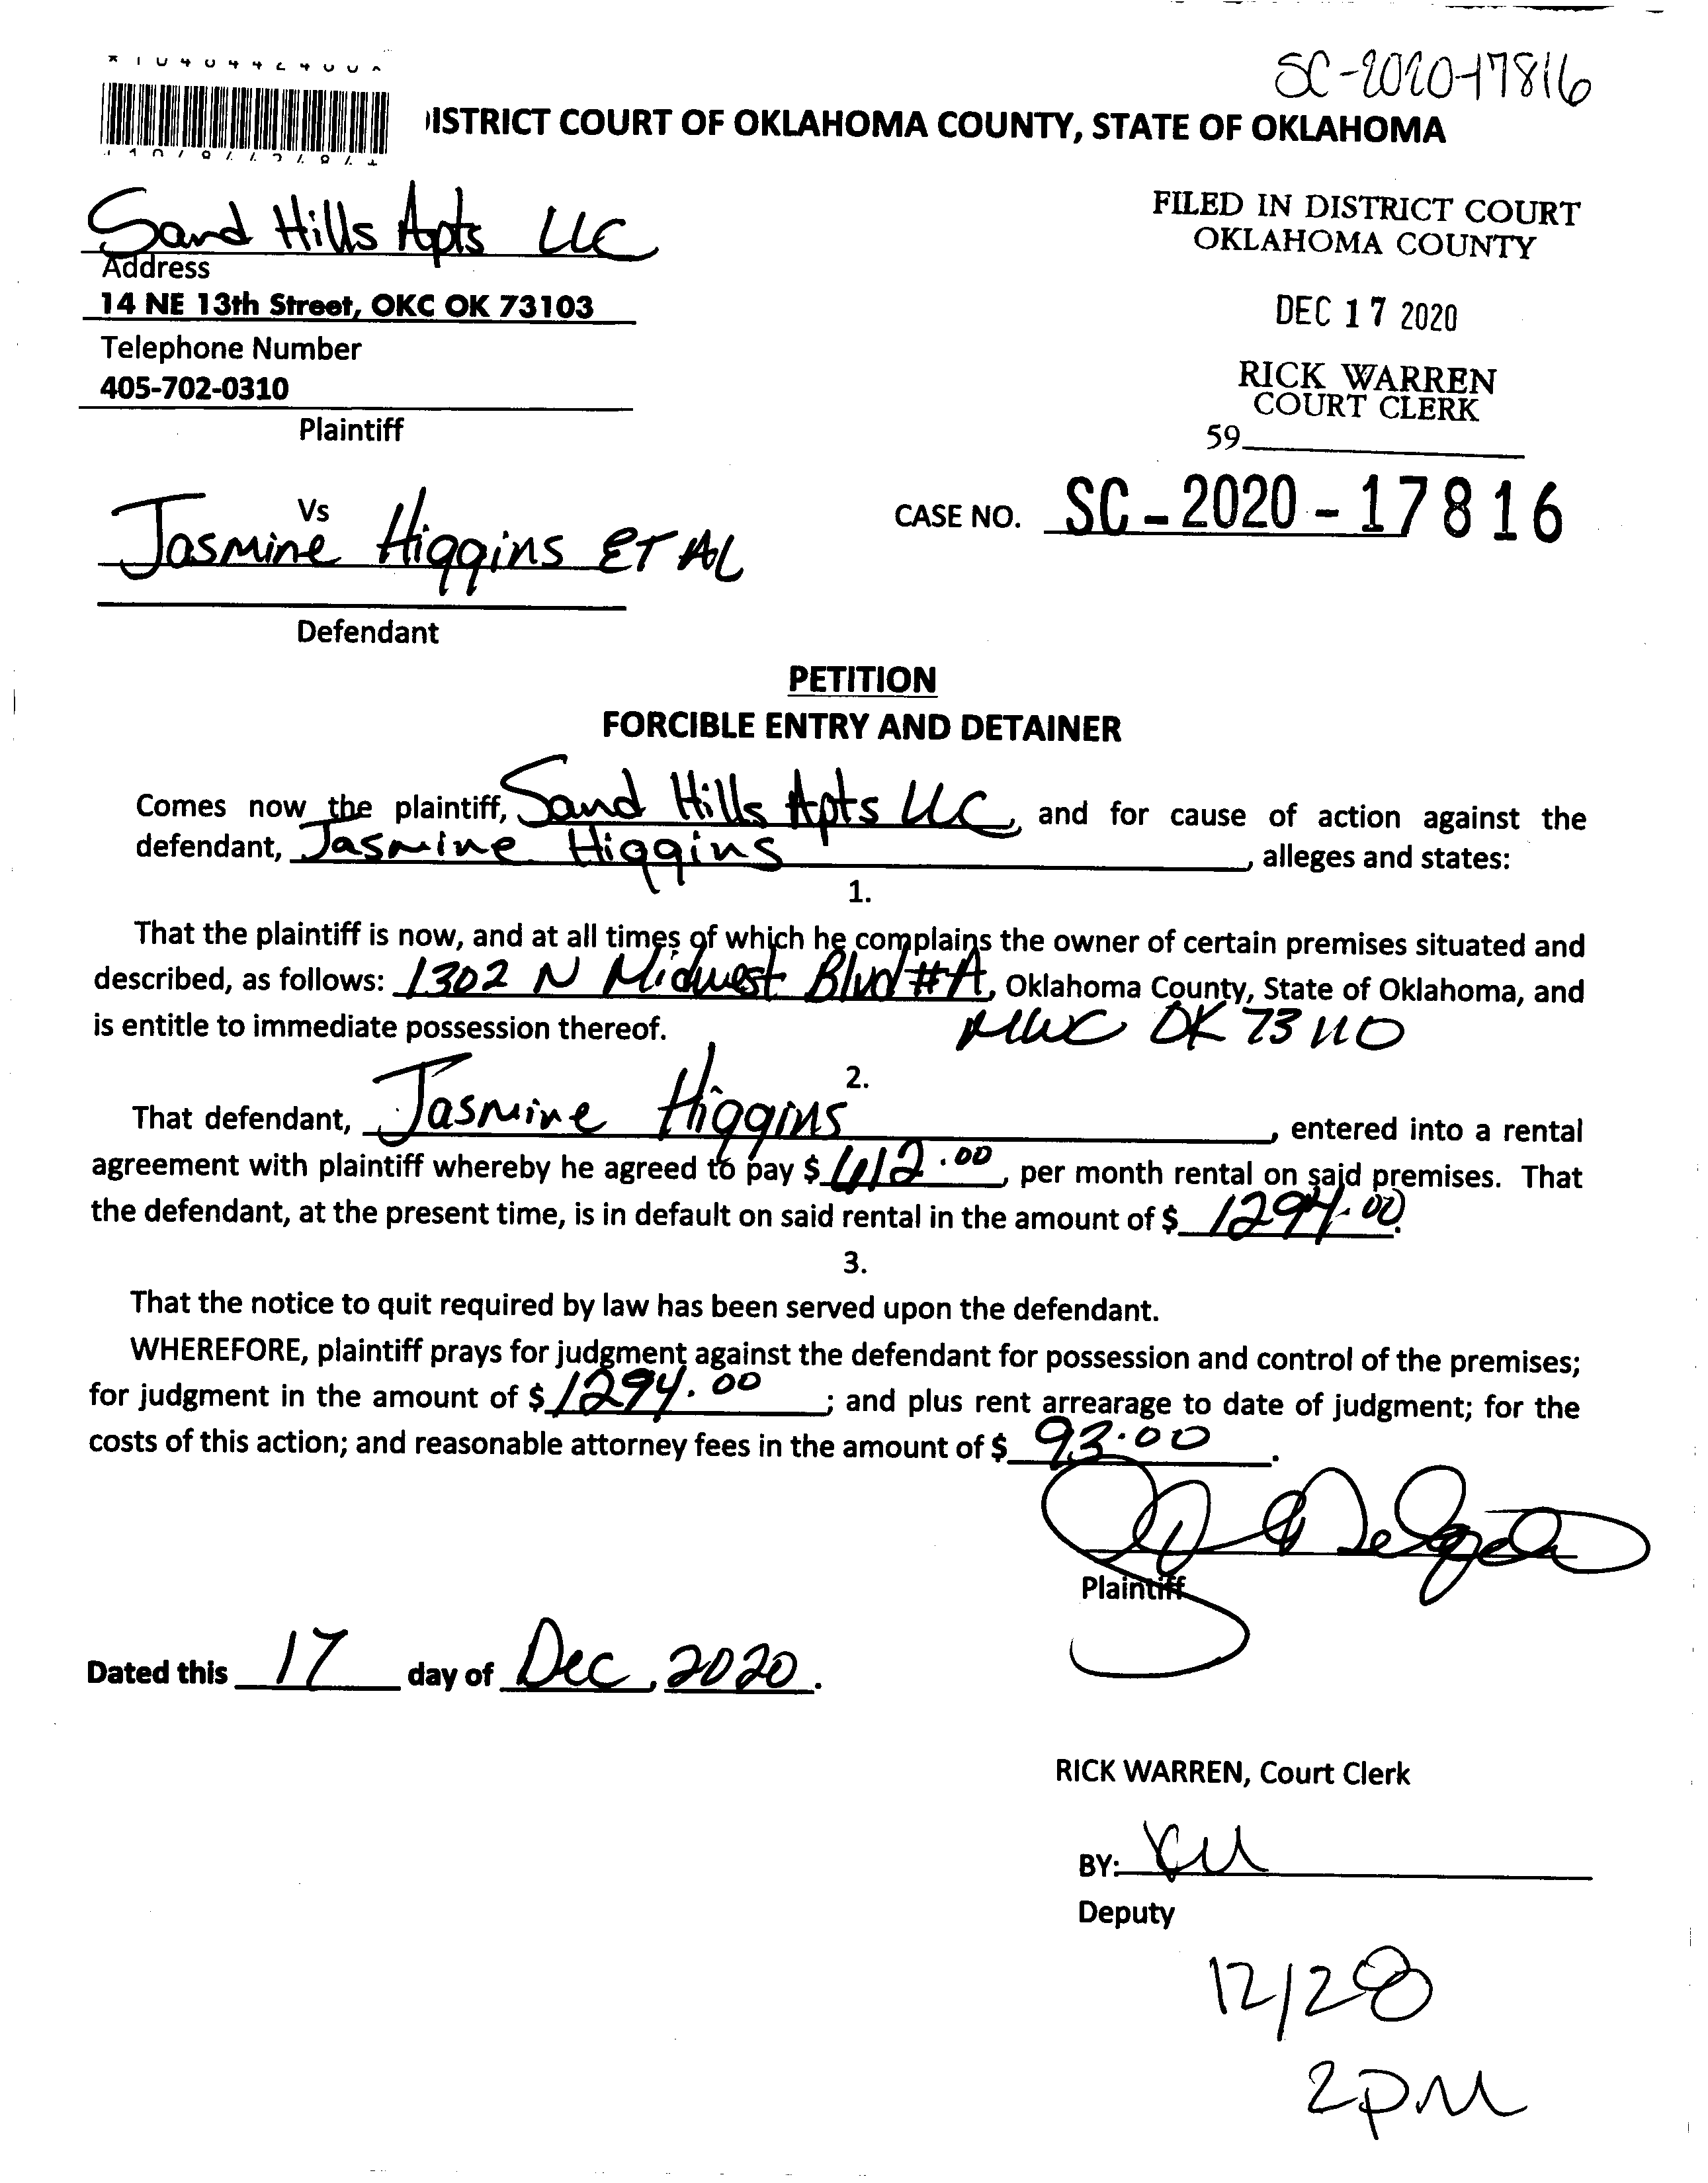 SC-2020-17816
ISTRICT COURT OF OKLAHOMA COUNTY, STATE OF OKLAHOMA
Sand Hills Apts LLC
Address
14 NE 13th Street, OKC OK 73103
Telephone Number
405-702-0310
Plaintiff
FILED IN DISTRICT COURT
OKLAHOMA COUNTY
DEC 17 2020
RICK WARREN
COURT CLERK
59
Vs
Jasmine Higgins ET AL
Defendant
CASE NO. SC-2020-17816
PETITION
FORCIBLE ENTRY AND DETAINER
Comes now the plaintiff, Sand Hills Apts LLC, and for cause of action against the
defendant, Jasmine Higgins, alleges and states:
1.
That the plaintiff is now, and at all times of which he complains the owner of certain premises situated and
described, as follows: 1302 N Midwest Blvd #A, Oklahoma County, State of Oklahoma, and
is entitle to immediate possession thereof. MWC OK 73110
2.
That defendant, Jasmine Higgins, entered into a rental
agreement with plaintiff whereby he agreed to pay $ 612.00, per month rental on said premises. That
the defendant, at the present time, is in default on said rental in the amount of $ 1294.00.
3.
That the notice to quit required by law has been served upon the defendant.
WHEREFORE, plaintiff prays for judgment against the defendant for possession and control of the premises;
for judgment in the amount of $ 1294.00; and plus rent arrearage to date of judgment; for the
costs of this action; and reasonable attorney fees in the amount of $ 93.00.
Delgado
Plaintiff
Dated this 17 day of Dec, 2020.
RICK WARREN, Court Clerk
BY:
Deputy
12/28
2PM